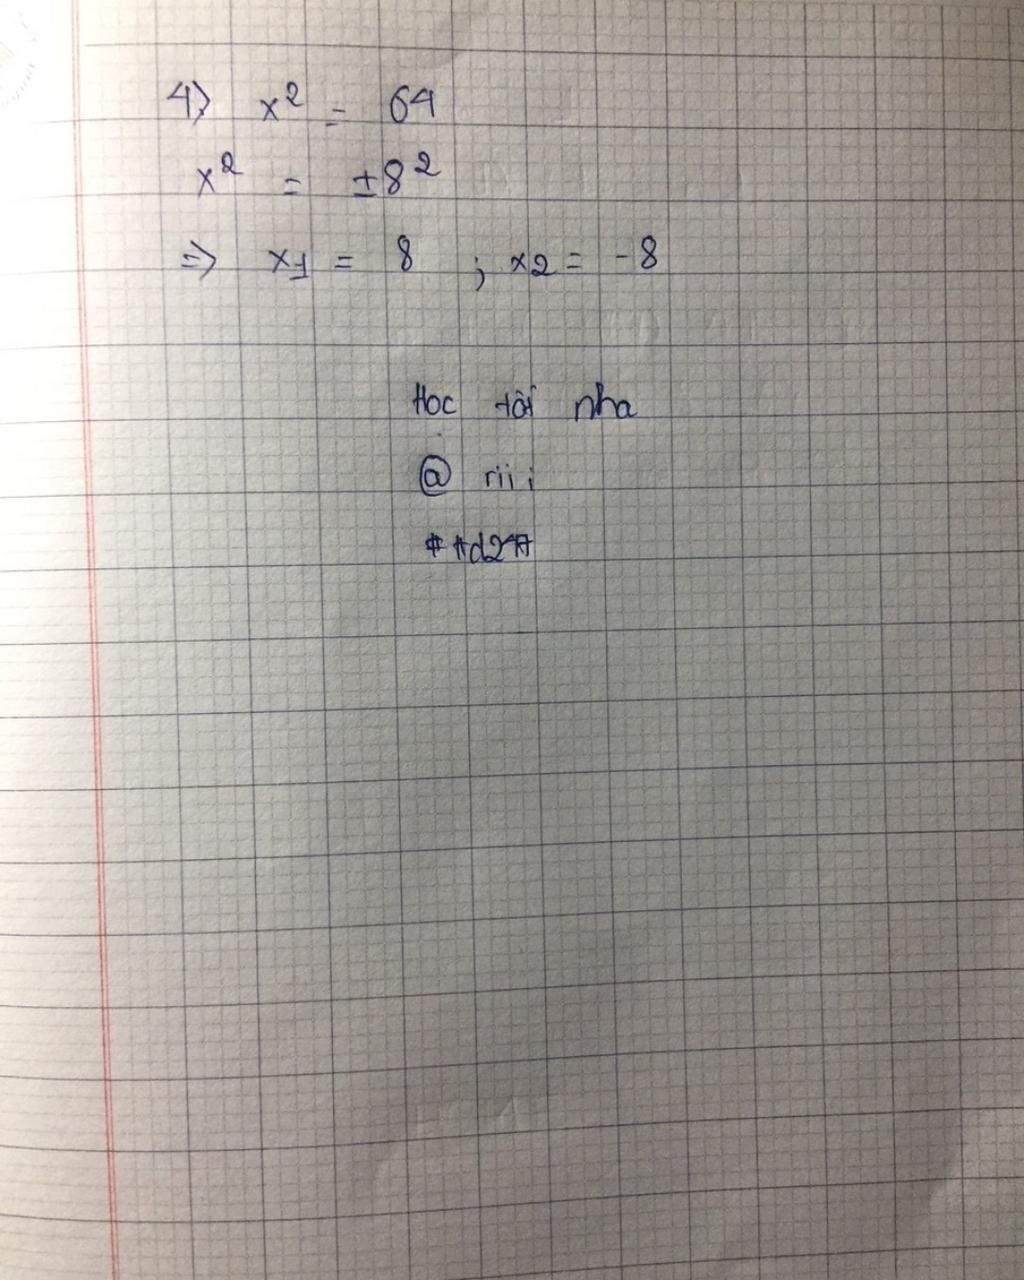 4) x² = 64
x² = ±8²
=> x1 = 8 ; x2 = -8
Học tốt nha
@ riii